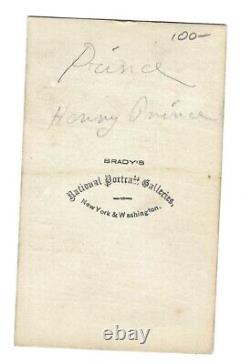 100-
Prince
Henry Prince
BRADY'S
National Portrait Galleries,
New York & Washington.
thumbimg.com